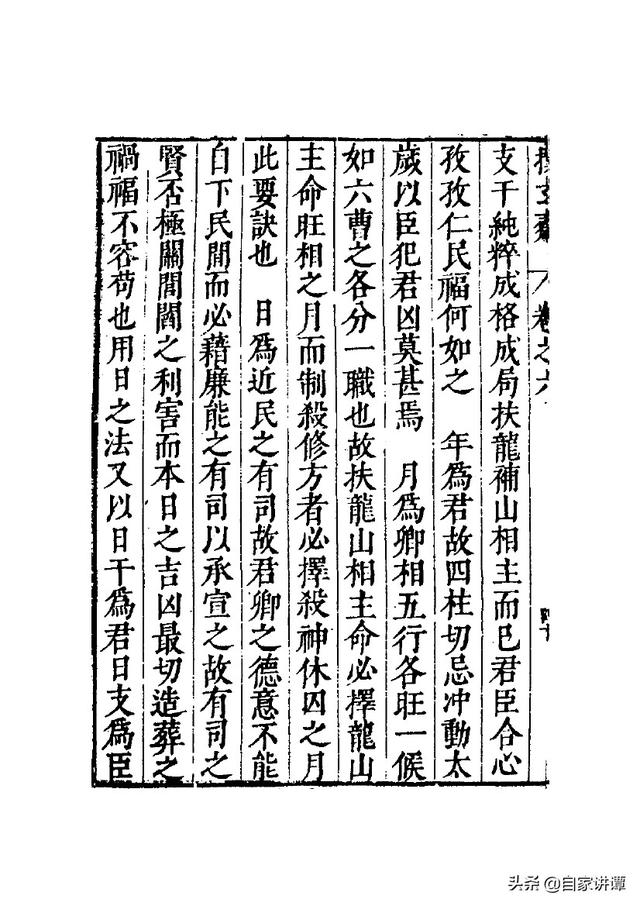 卷之六
支干純粹成格成局扶龍補山相主而已君臣合心
孜孜仁民福何如之　年為君故四柱切忌冲動太
歲以臣犯君凶莫甚焉　月為卿相五行各旺一候
如六曹之各分一職也故扶龍山相主命必擇龍山
主命旺相之月而制殺修方者必擇殺神休囚之月
此要訣也　日為近民之有司故君卿之德意不能
自下民間而必藉廉能之有司以承宣之故有司之
賢否極關閭閻之利害而本日之吉凶最切造葬之
禍福不容苟也用日之法又以日干為君日支為臣
头条 @自家讲谭